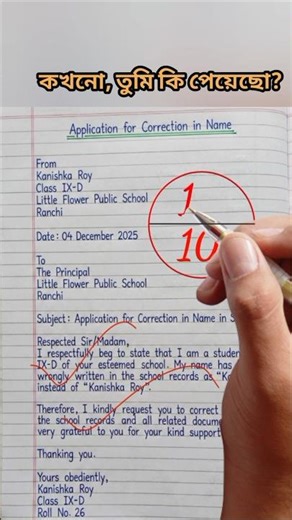 কখনো, তুমি কি পেয়েছো?
Application for Correction in Name
From
Kanishka Roy
Class IX-D
Little Flower Public School
Ranchi
1
10
Date: 04 December 2025
To
The Principal
Little Flower Public School
Ranchi
Subject: Application for Correction in Name in
Respected Sir/Madam,
I respectfully beg to state that I am a
IX-D of your esteemed school. My name has
wrongly written in the school records as
instead of "Kanishka Roy".
Therefore, I kindly request you to correct
the school records and all related
very grateful to you for your kind support
Thanking you.
Yours obediently,
Kanishka Roy
Class IX-D
Roll No. 26